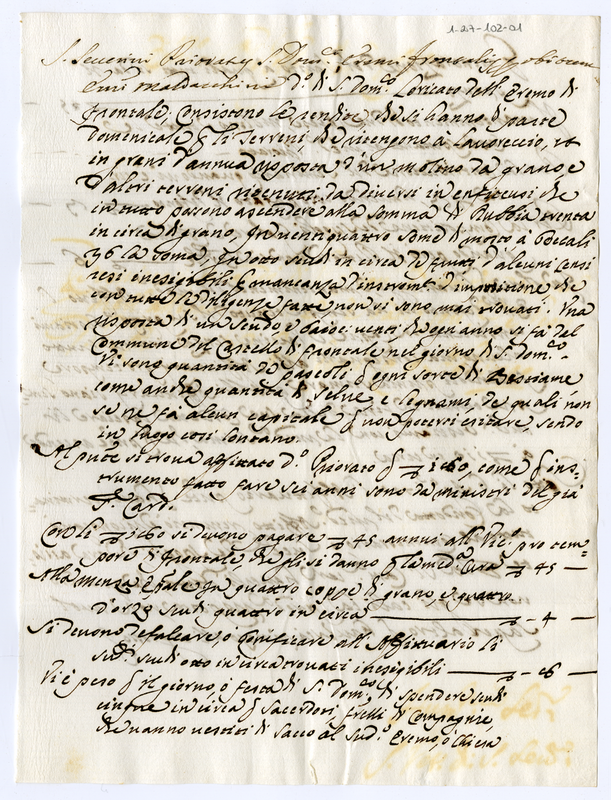 1-27-102-01
S. Severini Prioratus S. Dom.ci Eremi Frontalis pp obitum
Emi Maldachini D.o di S. Dom.co Loricato dell'Eremo di
Frontale, Consistono le rendite che si hanno di parte
Domenicale li terreni che si tengono à lavoreccio, et
in grani d'annua risposta d'un molino da grano, e
d'altri terreni ritenuti da diversi in enfiteusi che
in tutto possono ascendere alla somma di Rubbia trenta
in circa di grano, In ventiquattro some di mosto à bocali
96 la soma, In otto scudi in circa di frutti d'alcuni censi
resi inesigibili mancanza d'instrom.ti d'impositione che
con tutte le diligenze fatte non si sono mai trovati. Una
risposta di un scudo, e baiocchi venti che ogn'anno si fà dal
Commune del Castello di Frontale nel giorno di S. Dom.co
Vi sono quantità de pascoli ogni sorte di Bestiame,
come anche quantità di selve e legnami, de quali non
se ne fà alcun capitale non potersi esitare, sendo
in luogo così lontano.
Al pnte si trova affittato d.o Priorato 160, come ins=
trumento fatto fare sei anni sono da ministri del già
S. Card.
Con li 160 si devono pagare 45 annui all'Vic.o pro tem=
pore di Frontale che gli si danno la med.a Cura 45 —
Alla mensa Epale In quattro coppe di grano, e quattro
d'orzo scudi quattro in circa — 4 —
Si devono defalcare, ò bonificare all'Affittuario li
sud.i scudi otto in circa trovati inesigibili — 8 —
Vi è peso il giorno, ò festa di S. Dom.co di spendere scudi
cinque in circa Sacerdoti, fratelli di Compagnie,
che vanno vestiti di sacco al sud.o Eremo, ò Chiesa